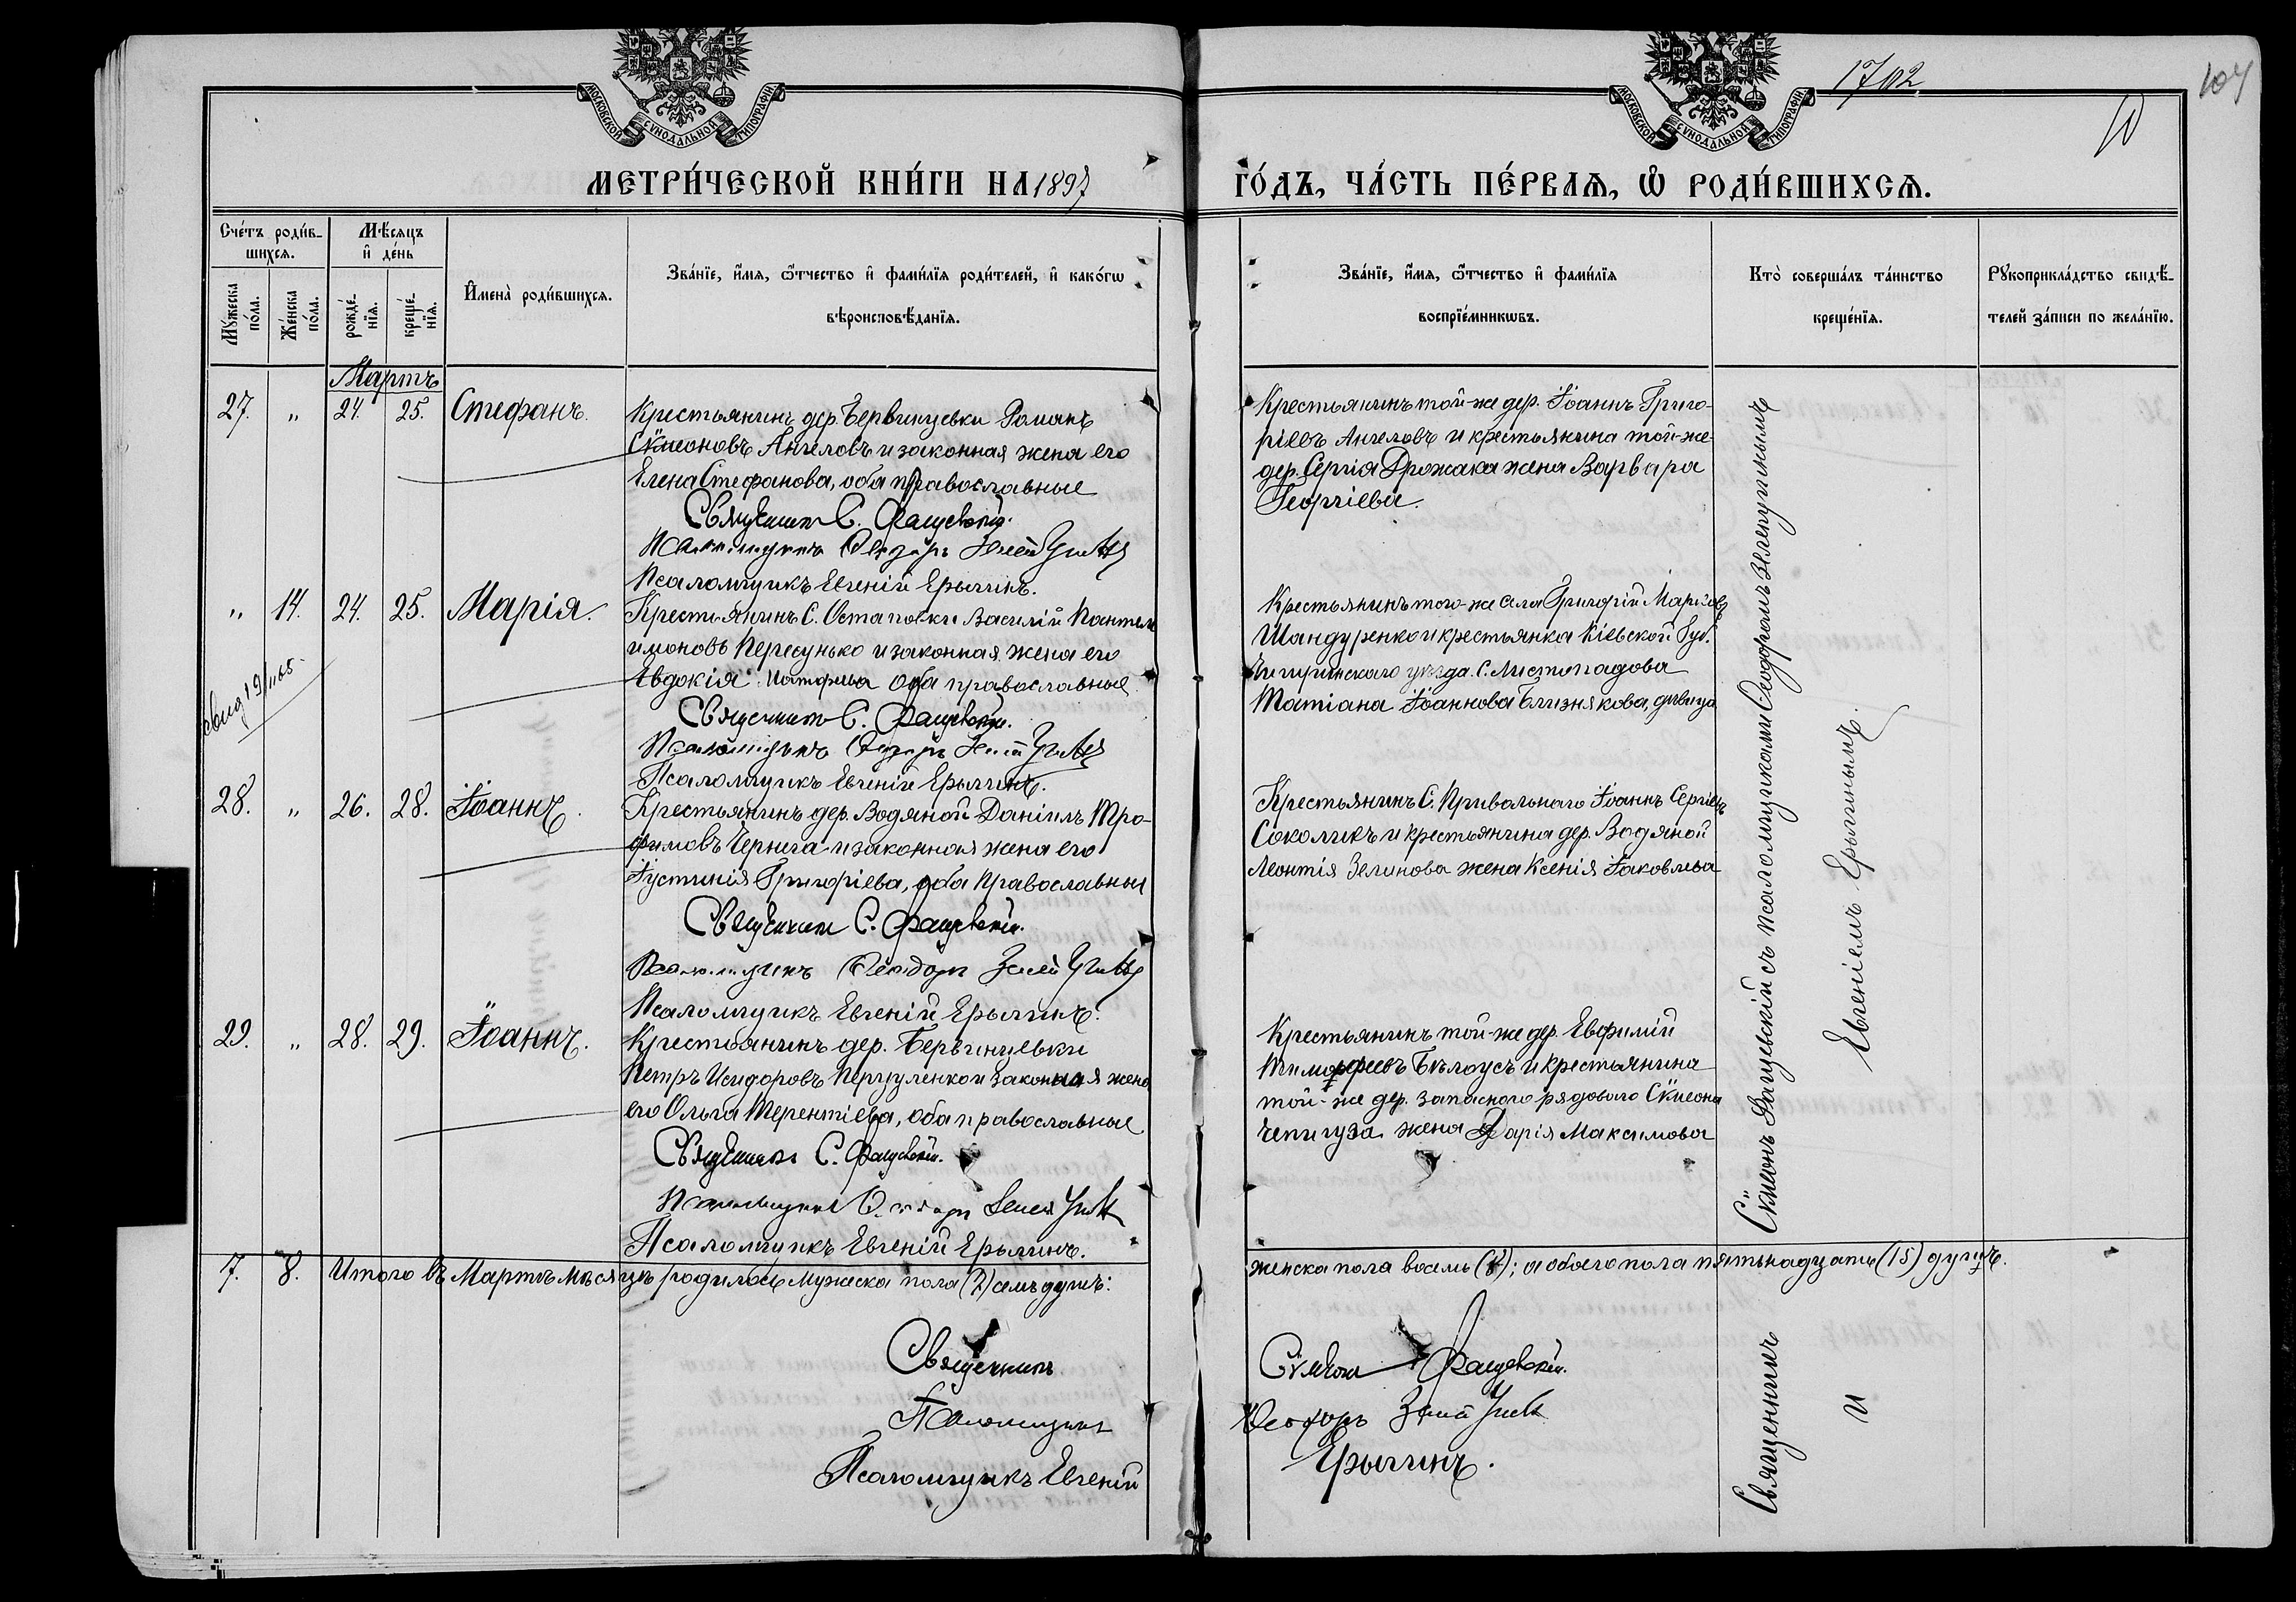 МОСКОВСКОЙ СУНОДАЛЬНОЙ ТИПОГРАФІИ
МОСКОВСКОЙ СУНОДАЛЬНОЙ ТИПОГРАФІИ
1702
104
10
МЕТРИ́ЧЕСКОЙ КНИ́ГИ НА 1897
ГО́ДЪ, ЧА́СТЬ ПЕ́РВАѦ, Ѡ҆ РОДИ́ВШИХСѦ.
Сче́тъ роди́в-
шихсѧ.
Мꙋ́жеска
по́ла.
Же́нска
по́ла.
Мѣ́сѧцъ
и҆ де́нь
рожде́-
нїѧ.
креще́-
нїѧ.
И҆мена̀ роди́вшихсѧ.
Зва́нїе, и҆́мѧ, ѻ҆́тчество и҆ фами́лїѧ роди́телей, и҆ како́гѡ
вѣроисповѣ́данїѧ.
Зва́нїе, и҆́мѧ, ѻ҆́тчество и҆ фами́лїѧ
воспрїе́мникѡвъ.
Кто̀ соверша́лъ та́инство
креще́нїѧ.
Рꙋкоприкла́дство свидѣ́-
телей за́писи по жела́нїю.
Мартъ
27. " 24. 25. Стефанъ.
Крестьянинъ дер. Бервинцевки Романъ
Сѵмеоновъ Ангеловъ и законная жена его
Елена Стефанова, оба православные
Священникъ С. Фащевскій.
Псаломщикъ Ѳеодоръ
Псаломщикъ Евгеній Ерыгинъ.
Крестьянинъ той-же дер. Іоаннъ Григо-
ріевъ Ангеловъ и крестьянина той-же
дер. Сергія Дрожака жена Варвара
Георгіева.
" 14. 24. 25. Марія.
Крестьянинъ С. Остаповки Василій Пантеле
имоновъ Пересунько и законная жена его
Евдокія оба православные
Священникъ С. Фащевскій.
Псаломщикъ Ѳеодоръ
Псаломщикъ Евгеній Ерыгинъ.
Крестьянинъ того-же села Григорій Марковъ
Шандуренко и крестьянка Кіевской Губ.
Чигиринскаго уѣзда С. Листопадова
Татіана Іоаннова Близнякова, дѣвица
28. " 26. 28. Іоаннъ.
Крестьянинъ дер. Водяной Даніилъ Тро-
фимовъ Чернега и законная жена его
Іустинія Григоріева, оба православные
Священникъ С. Фащевскій.
Псаломщикъ Ѳеодоръ
Псаломщикъ Евгеній Ерыгинъ.
Крестьянинъ С. Привольнаго Іоаннъ Сергіевъ
Соколикъ и крестьянина дер. Водяной
Леонтія Зелинова жена Ксенія Іаковлева
29. " 28. 29. Іоаннъ.
Крестьянинъ дер. Бервинцевки
Петръ Исидоровъ и законная жена
его Ольга Терентіева, оба православные
Священникъ С. Фащевскій.
Псаломщикъ Ѳеодоръ
Псаломщикъ Евгеній Ерыгинъ.
Крестьянинъ той-же дер. Евфимій
Тимофеевъ Бѣлоусъ и крестьянина
той-же дер. запаснаго рядового Сѵмеона
Чепигуза жена Дарія Максимова
Священникъ Сѵмеонъ Фащевскій съ псаломщиками Ѳеодоромъ
и Евгеніемъ Ерыгинымъ.
7. 8. Итого въ Мартѣ мѣсяцѣ родилось мужеска пола (7) семь душъ:
женска пола восемь (8); а обоего пола пятьнадцать (15) душъ.
Священникъ Сѵмеонъ Фащевскій.
Псаломщикъ Ѳеодоръ
Псаломщикъ Евгеній Ерыгинъ.